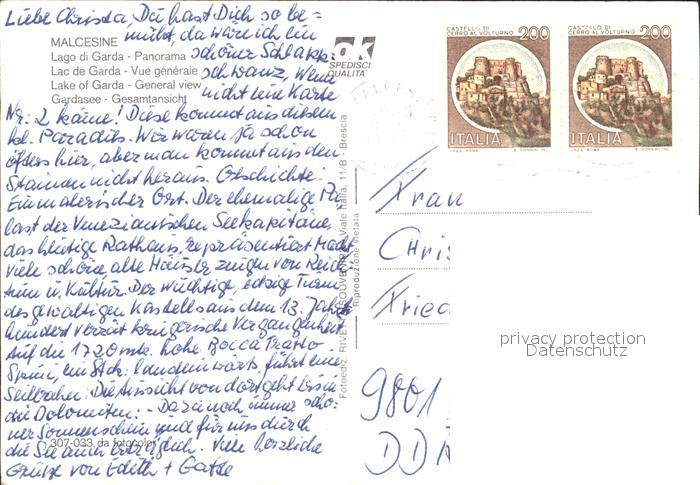 Liebe Christa, Du hast Dich so be=
müht, da wäre ich ein
schöner Schlapp
schwanz, wenn
nicht eine Karte
Nr. 2 käme! Diese kommt aus diesem
kl. Paradis. Wir waren ja schon
öfters hier, aber man kommt aus dem
Staunen nicht heraus. Geschichte:
Ein malerischer Ort. Der ehemalige Pa
last der Venezianischen Seekapitäne,
das heutige Rathaus, repräsentiert Macht
viele schöne, alte Häuser zeugen von Reich
tum u. Kultur. Der wuchtige, eckige Turm
des gewaltigen Kastells aus dem 13. Jahr
hundert verrät kriegerische Vergangenheit
Auf die 1720 mtr. hohe Bocca Tratto
Spini, ein Stck. landeinwärts, führt eine
Seilbahn. Die Aussicht von dort geht bis in
die Dolomiten. - Dazu noch immer schö=
ner Sonnenschein und für uns durch
die See auch erträglich. Viele herzliche
Grüße von Edith +
MALCESINE
Lago di Garda - Panorama
Lac de Garda - Vue générale
Lake of Garda - General view
Gardasee - Gesamtansicht
ok
SPEDISCI
QUALITÀ
307-033 da fotocolor
Fotoediz. RIVE SOUVENIR Viale Italia, 11/B - Brescia
Riproduzione vietata
CASTELLO DI
CERRO AL VOLTURNO 200
ITALIA
CASTELLO DI
CERRO AL VOLTURNO 200
ITALIA
Frau
Chris
Fried
9801
DD
privacy protection
Datenschutz